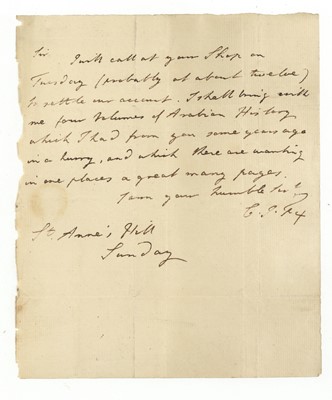 Sir I will call at your Shop on
Tuesday (probably at about twelve)
to settle our account. I shall bring with
me four Volumes of Arabian History
which I had from you some years ago
in a hurry, and which there are wanting
in some places a great many pages.
I am your humble Ser.t
C. J. Fox
St. Anne's Hill
Sunday